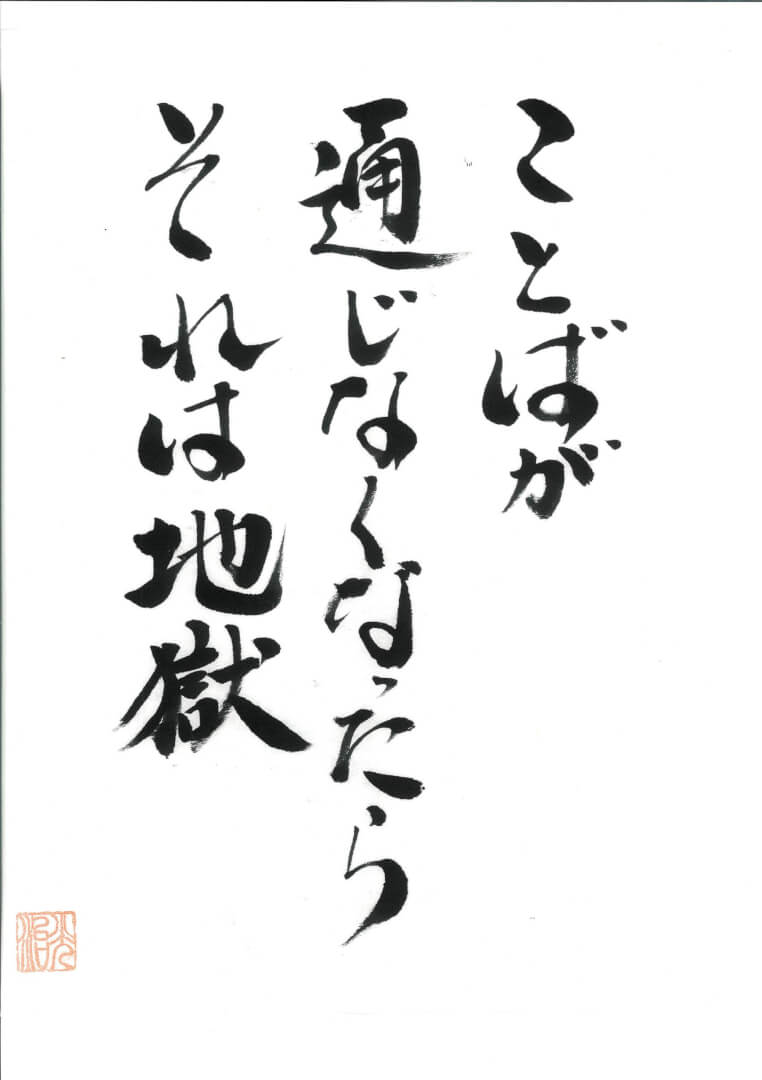 ことばが
通じなくなったら
それは地獄